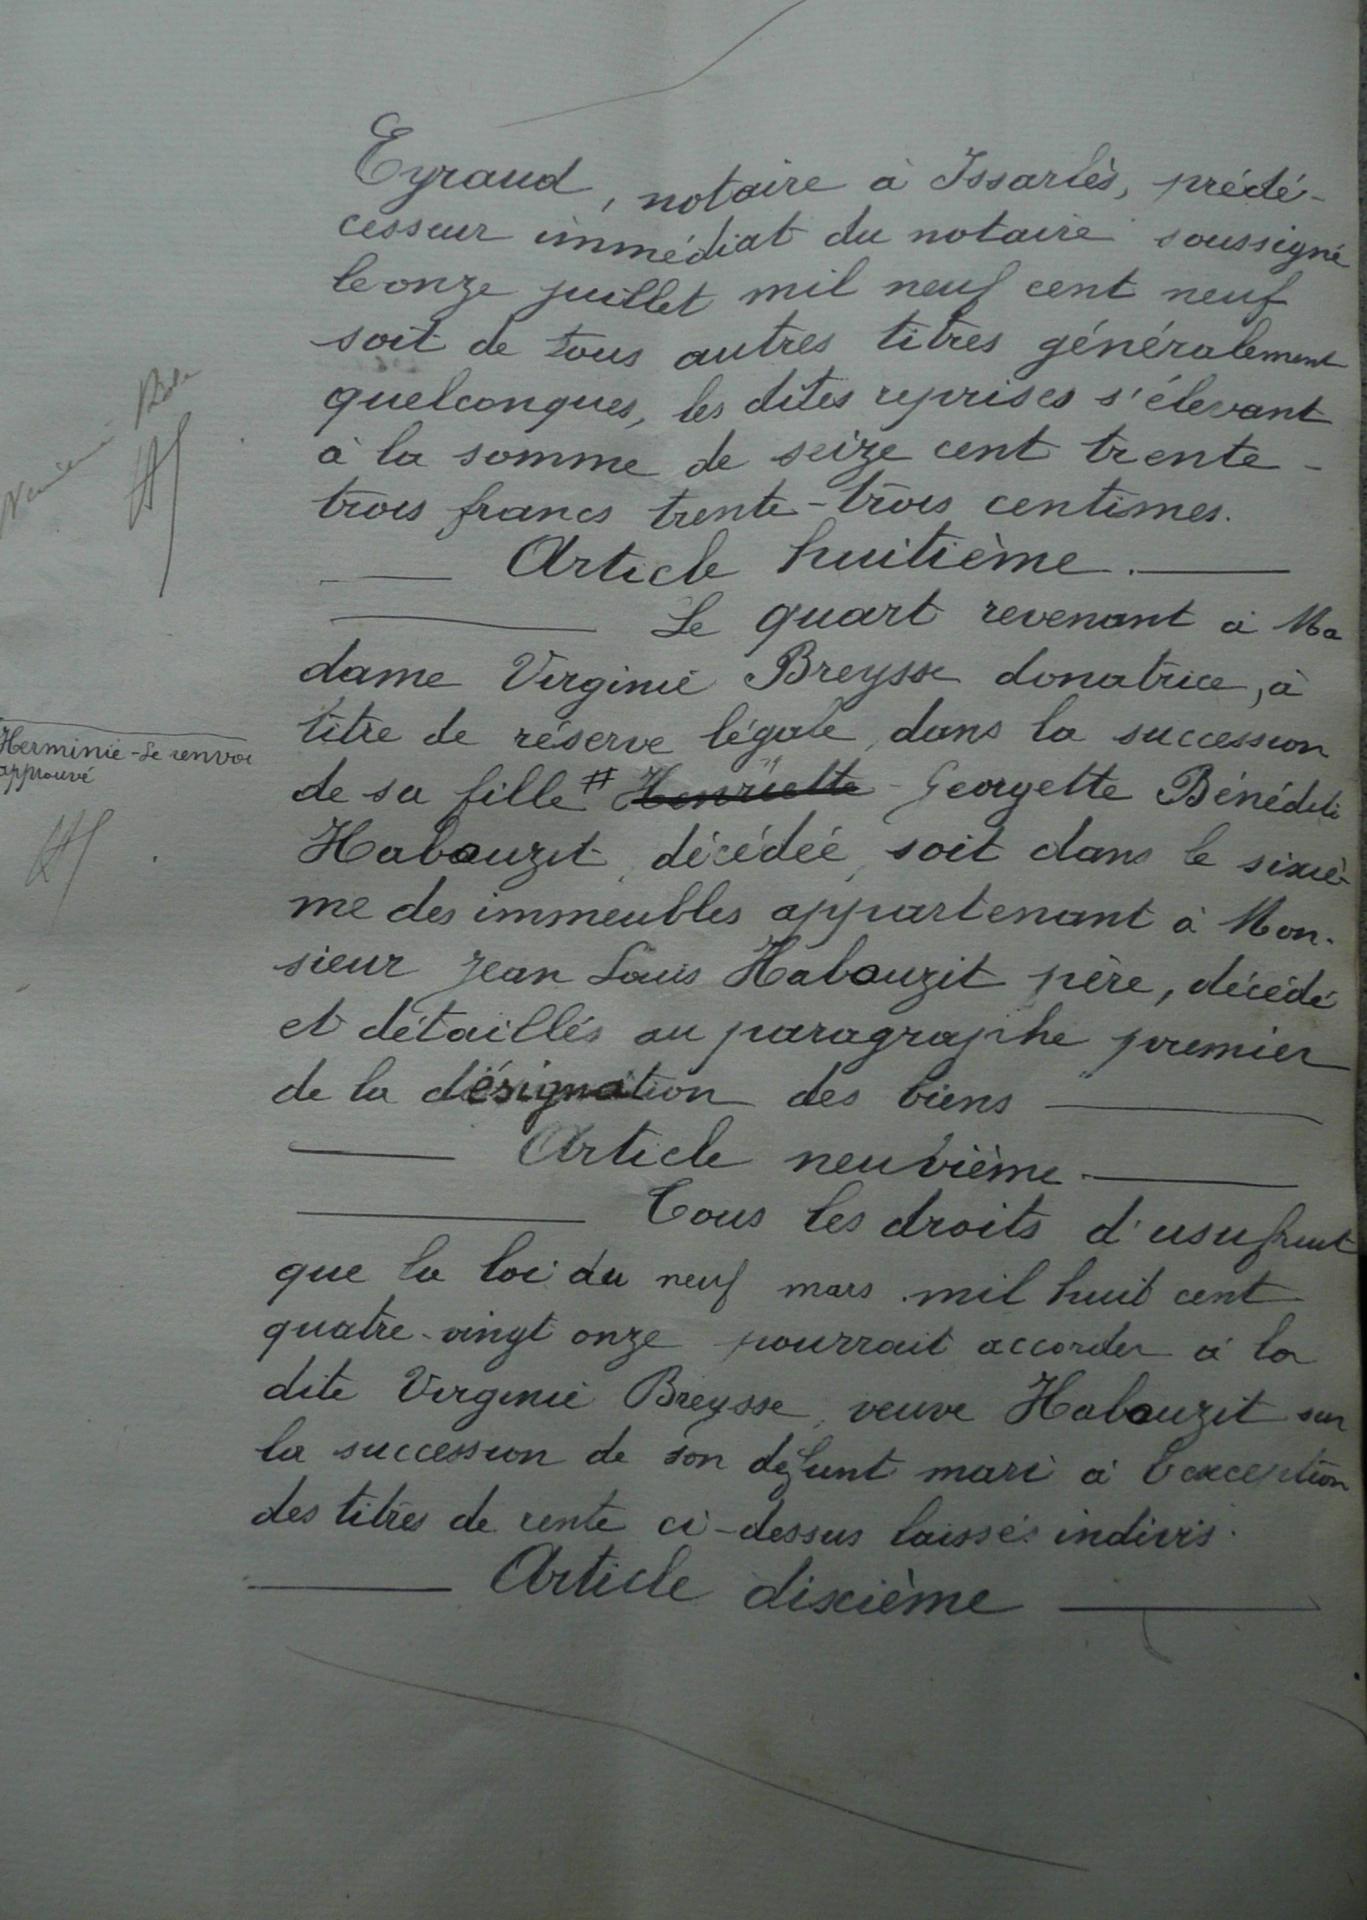 Eyraud, notaire à Issarlès, prédé-
cesseur immédiat du notaire soussigné
le onze juillet mil neuf cent neuf
soit de tous autres titres généralement
quelconques, les dites reprises s'élevant
à la somme de seize cent trente-
trois francs trente-trois centimes.
Article huitième.
Le quart revenant à Ma
dame Virginie Breysse donatrice, à
titre de réserve légale, dans la succession
Herminie - Le renvoi
approuvé
de sa fille # Henriette Georgette Bénédicte
Habouzit, décédée, soit dans le sixiè-
me des immeubles appartenant à Mon-
sieur Jean Louis Habouzit père, décédé
et détaillés au paragraphe premier
de la désignation des biens
Article neuvième
Tous les droits d'usufruit
que la loi du neuf mars mil huit cent
quatre-vingt onze pourrait accorder à la
dite Virginie Breysse, veuve Habouzit sur
la succession de son défunt mari à l'exception
des titres de rente ci-dessus laissés indivis.
Article dixième